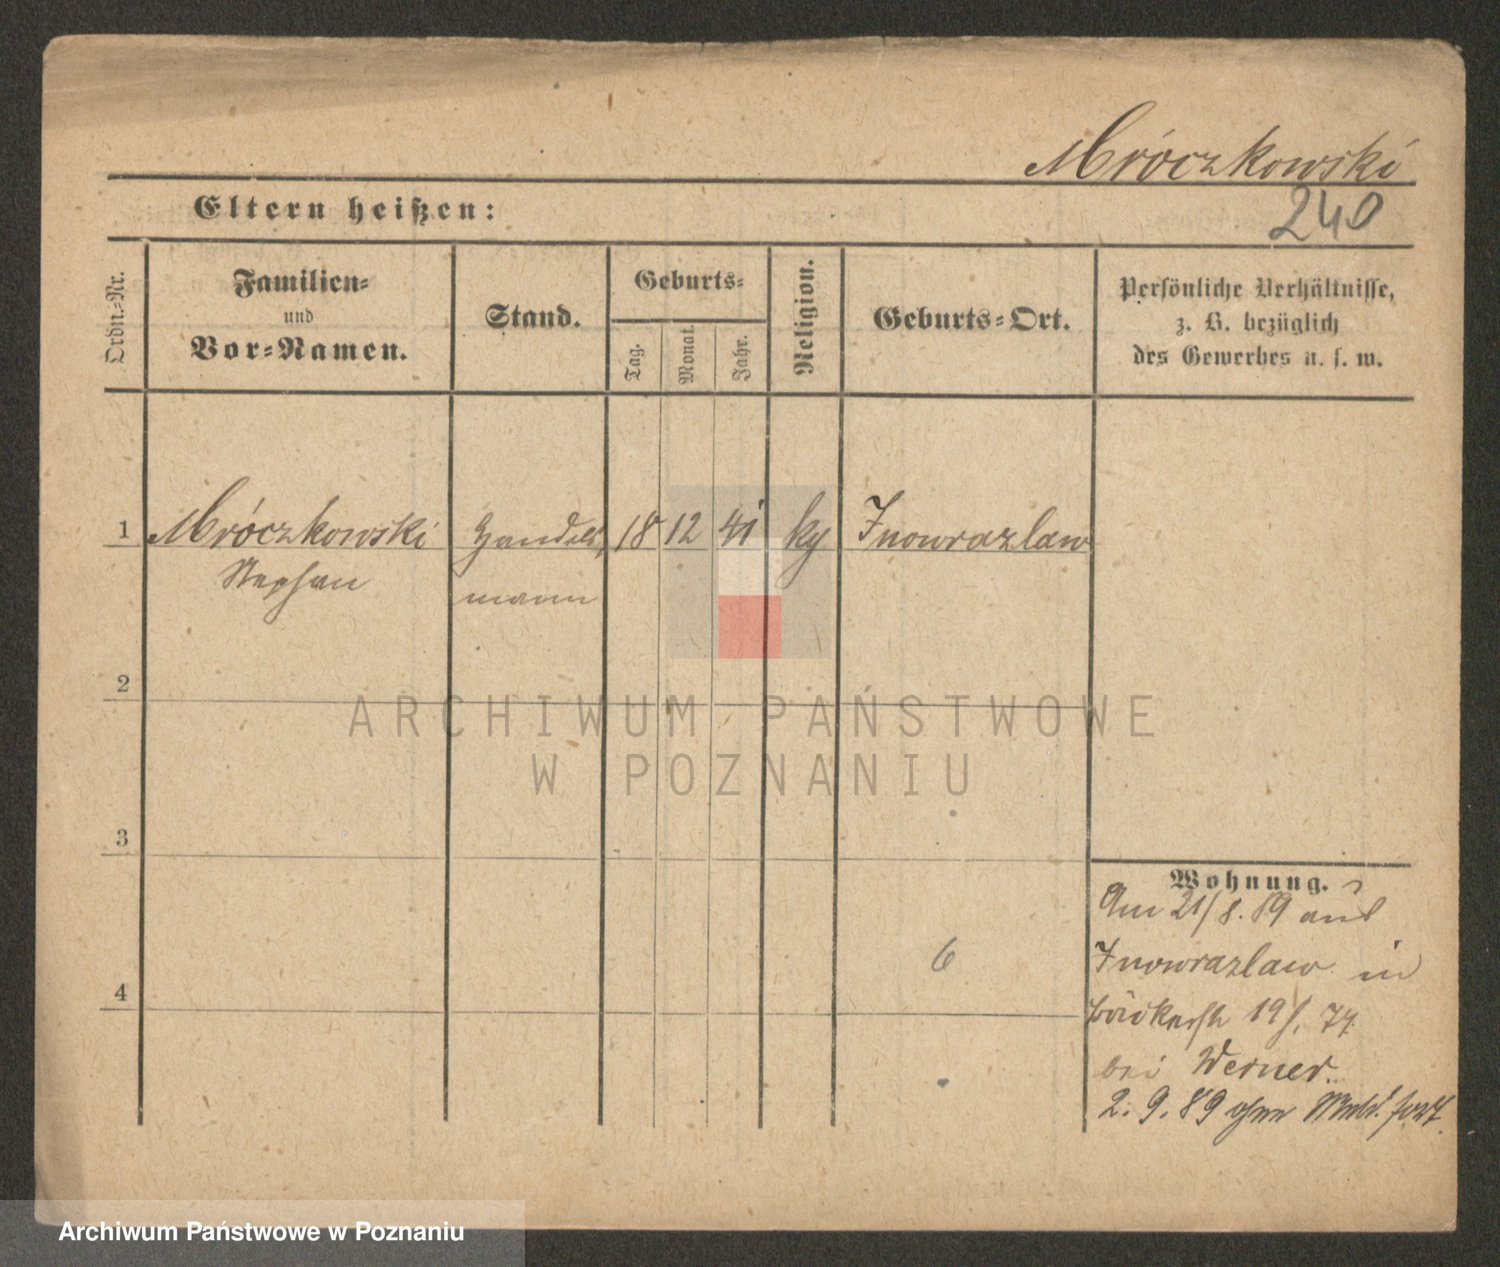 Mróczkowski
240
Eltern heißen:
Ordn.-Nr.
Familien-
und
Vor-Namen.
Stand.
Geburts-
Tag.
Monat.
Jahr.
Religion.
Geburts-Ort.
Persönliche Verhältnisse,
z. B. bezüglich
des Gewerbes u. s. w.
1 Mróczkowski Handels, 18 12 41 Inowrazlaw
Stephan mann
2
3
4
ARCHIWUM PAŃSTWOWE
W POZNANIU
6
Wohnung.
Am 21/8. 89 aus
Inowrazlaw in
19/. 74
bei Werner.
2. 9. 89 ohne Meld. fort.
Archiwum Państwowe w Poznaniu